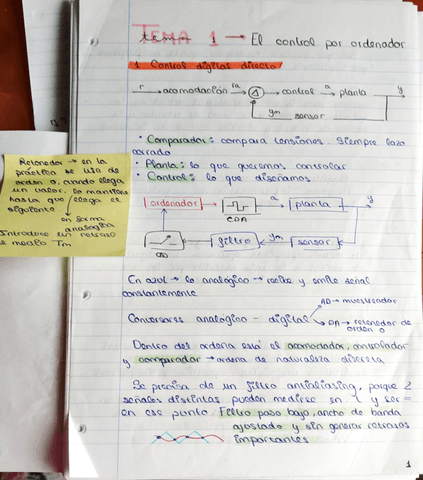 TEMA 1 → El control por ordenador
1. Control digital directo
r acomodación ra control a planta y
ym sensor
• Comparador: compara tensiones. Siempre lazo
cerrado
• Planta: lo que queremos controlar
• Control: lo que diseñamos
Retenedor → en la
práctica se usa de
orden 0, cuando llega
un valor, lo mantiene
hasta que llega el
siguiente
en forma
analógica
Introduce un retraso
e medio Tm
ordenador a planta y
CDA
filtro ym sensor
En azul → lo analógico → recibe y emite señal
constantemente
AD → muestreador
Conversores analógico - digital
DA → retenedor de
orden 0
Dentro del ordena está el acomodador, controlador
y comparador → ordena de naturaleza discreta
Se precisa de un filtro antialiasing, porque 2
señales distintas pueden medirse en t y ser =
en ese punto. Filtro paso bajo, ancho de banda
ajustado y sin generar retrasos
importantes
1